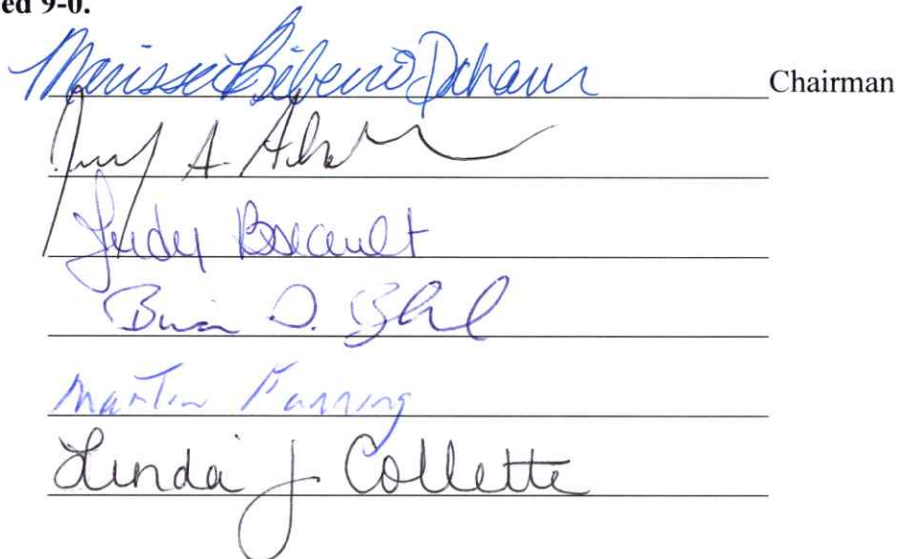 ed 9-0.
Marissa Ribeiro Dahan Chairman
A.
Judy
Brian D.
Martin Fanning
Linda J Collette